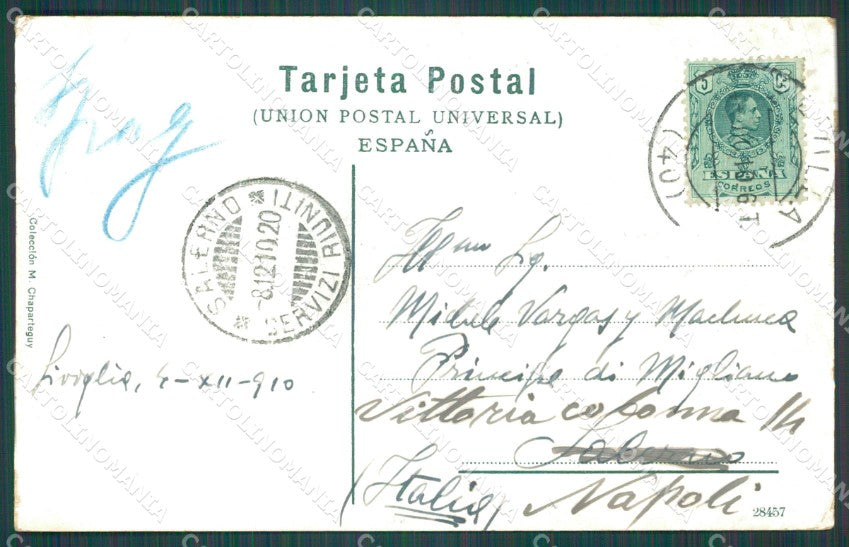 Tarjeta Postal
(UNION POSTAL UNIVERSAL)
ESPAÑA
5 5
ESPAÑA
CORREOS
SEVILLA
(40)
SALERNO
-8.12.10.20
SERVIZI RIUNITI
Colección M. Chaparteguy
Siviglia, 4-XII-910
Ill.mo Sig.
Michele Vargas y Machuca
Principe di Migliano
Vittoria Colonna 14
Salerno
(Italia) Napoli
28457
CARTOLINOMANIA